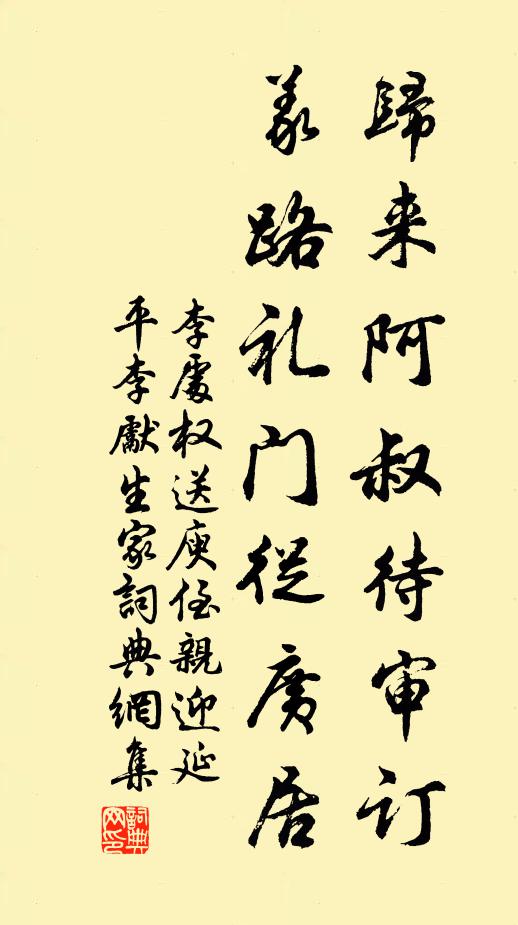 歸来阿叔待审订
义路礼门從廣居
李處权送庚侄親迎延
平李獻生家詞典網集
詞典网印